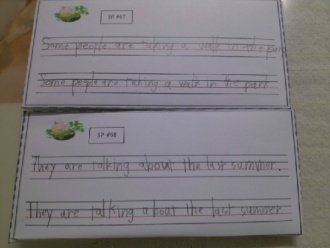 EP #67
Some people are taking a walk in the park
Some people are taking a walk in the park
EP #68
They are talking about the last summer.
They are talking about the last summer